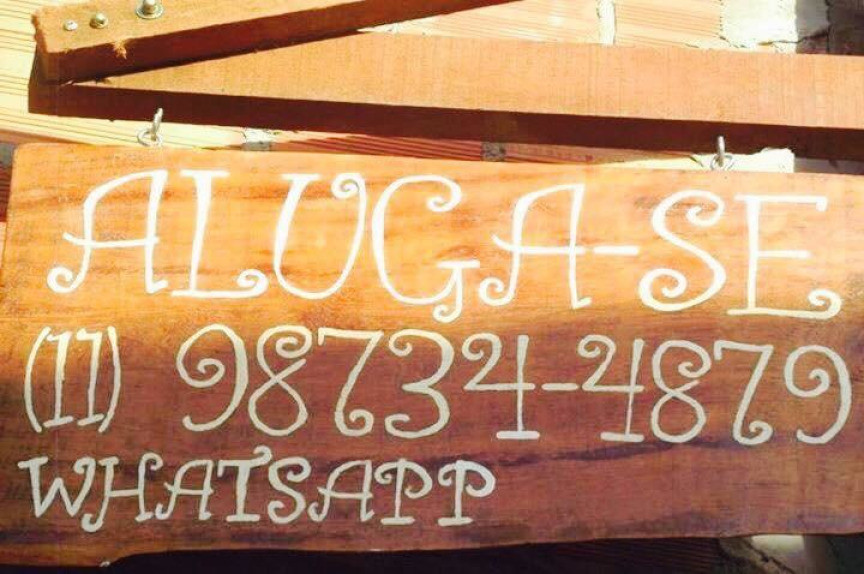 ALUGA-SE
(11) 98734-4879
WHATSAPP